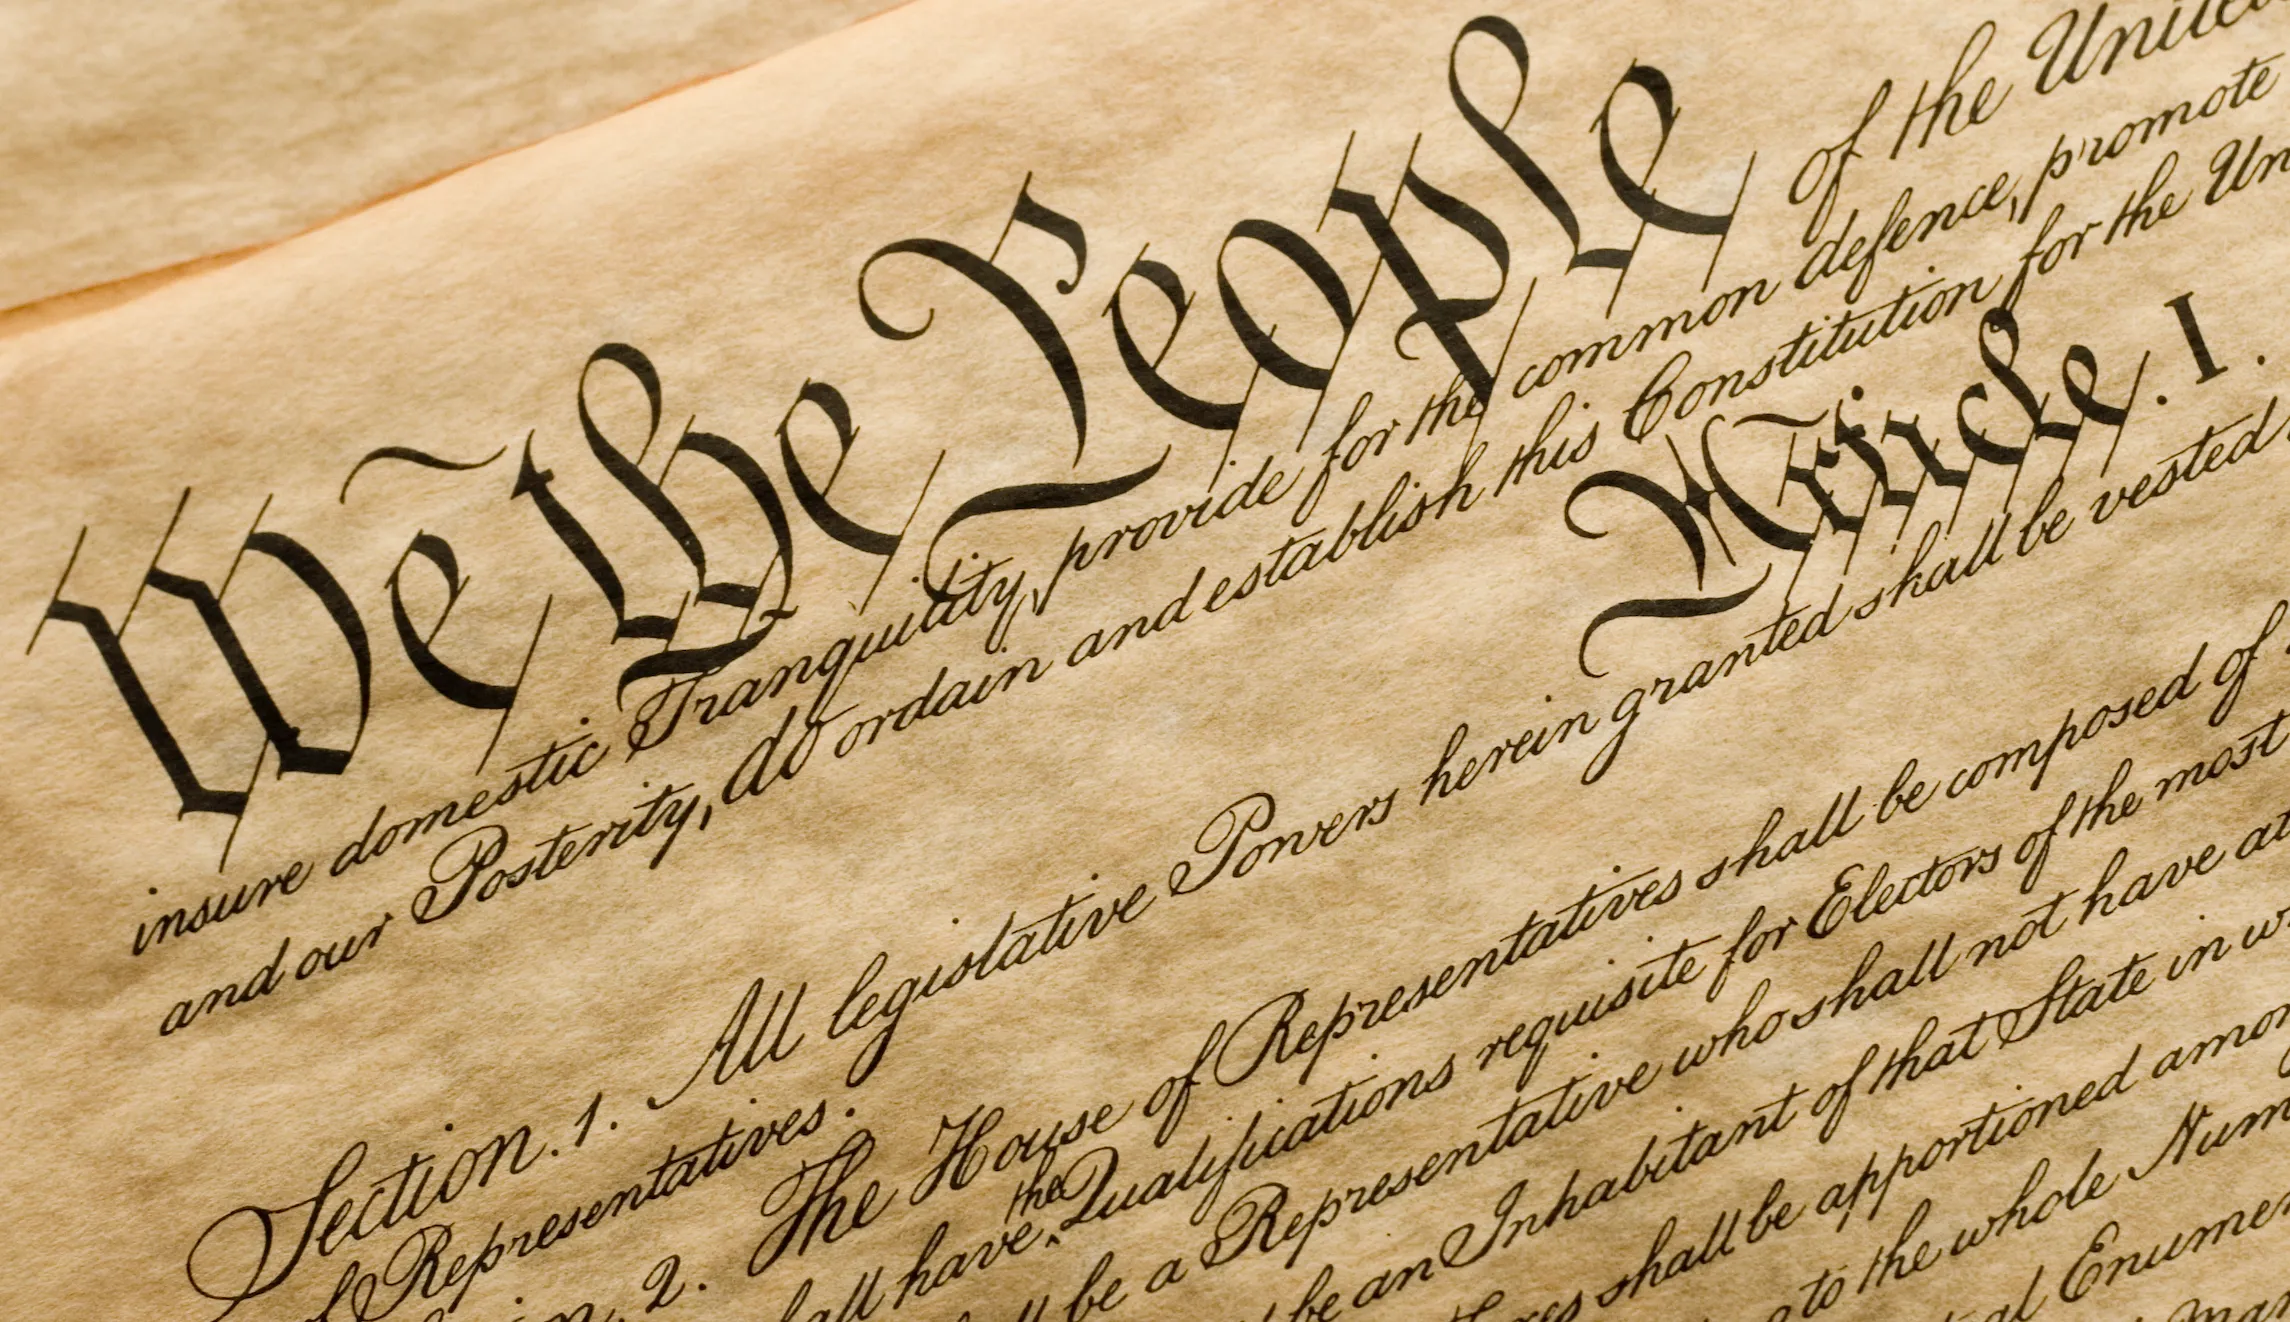 We the People of the United
insure domestic Tranquility, provide for the common defence, promote
and our Posterity, do ordain and establish this Constitution for the Un
Article. I.
Section. 1. All legislative Powers herein granted shall be vested
of Representatives.
2. The House of Representatives shall be composed of
have the Qualifications requisite for Electors of the most
be a Representative who shall not have
be an Inhabitant of that State in
shall be apportioned amon
to the whole Num
Enumer